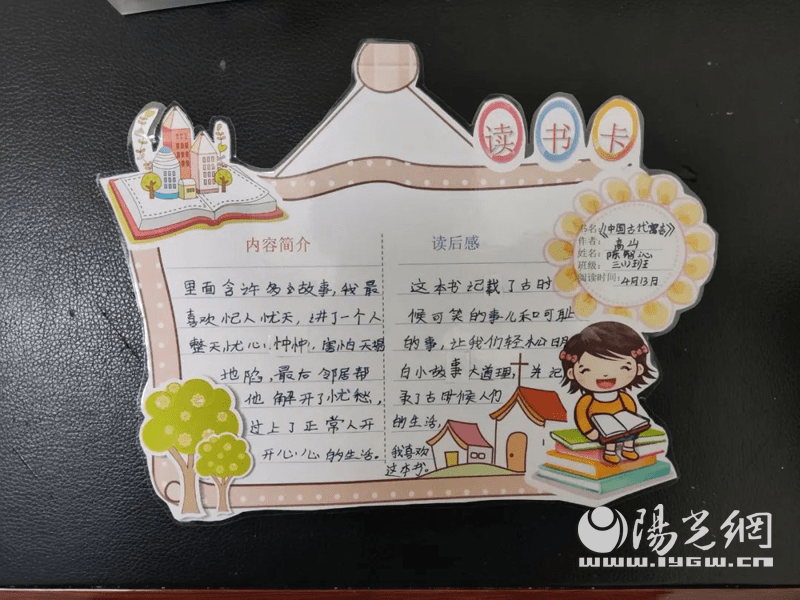 读书卡
书名:《中国古代寓言》
作者: 高山
姓名: 陈
班级:
阅读时间: 4月13日
内容简介
里面含许多故事,我最
喜欢杞人忧天,讲了一个人
整天忧心忡忡,害怕天塌
地陷,最后邻居帮
他解开了忧愁,
过上了正常人开
开心心的生活。
读后感
这本书记载了古时
候可笑的事儿和可耻
的事,让我们轻松明
白小故事大道理,并记
录了古时候人们
的生活,
我喜欢
这本书。
陽光網
www.iygw.cn